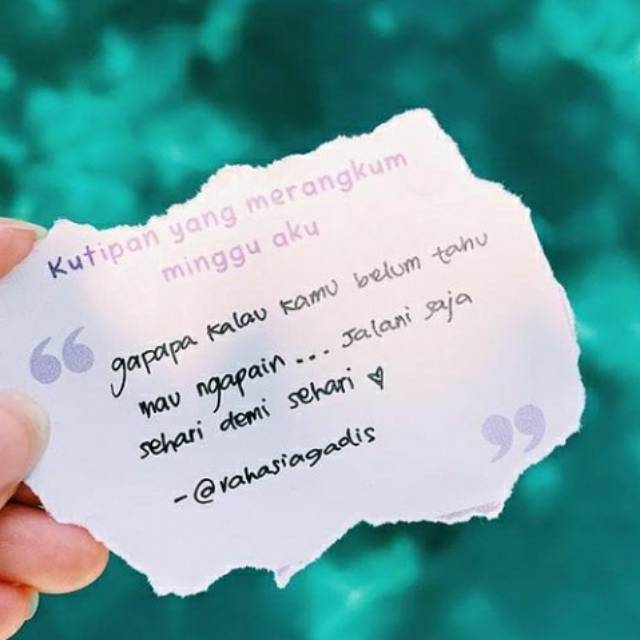 Kutipan yang merangkum
minggu aku
“gapapa kalau kamu belum tahu
mau ngapain... Jalani saja
sehari demi sehari ♡”
-@rahasiagadis